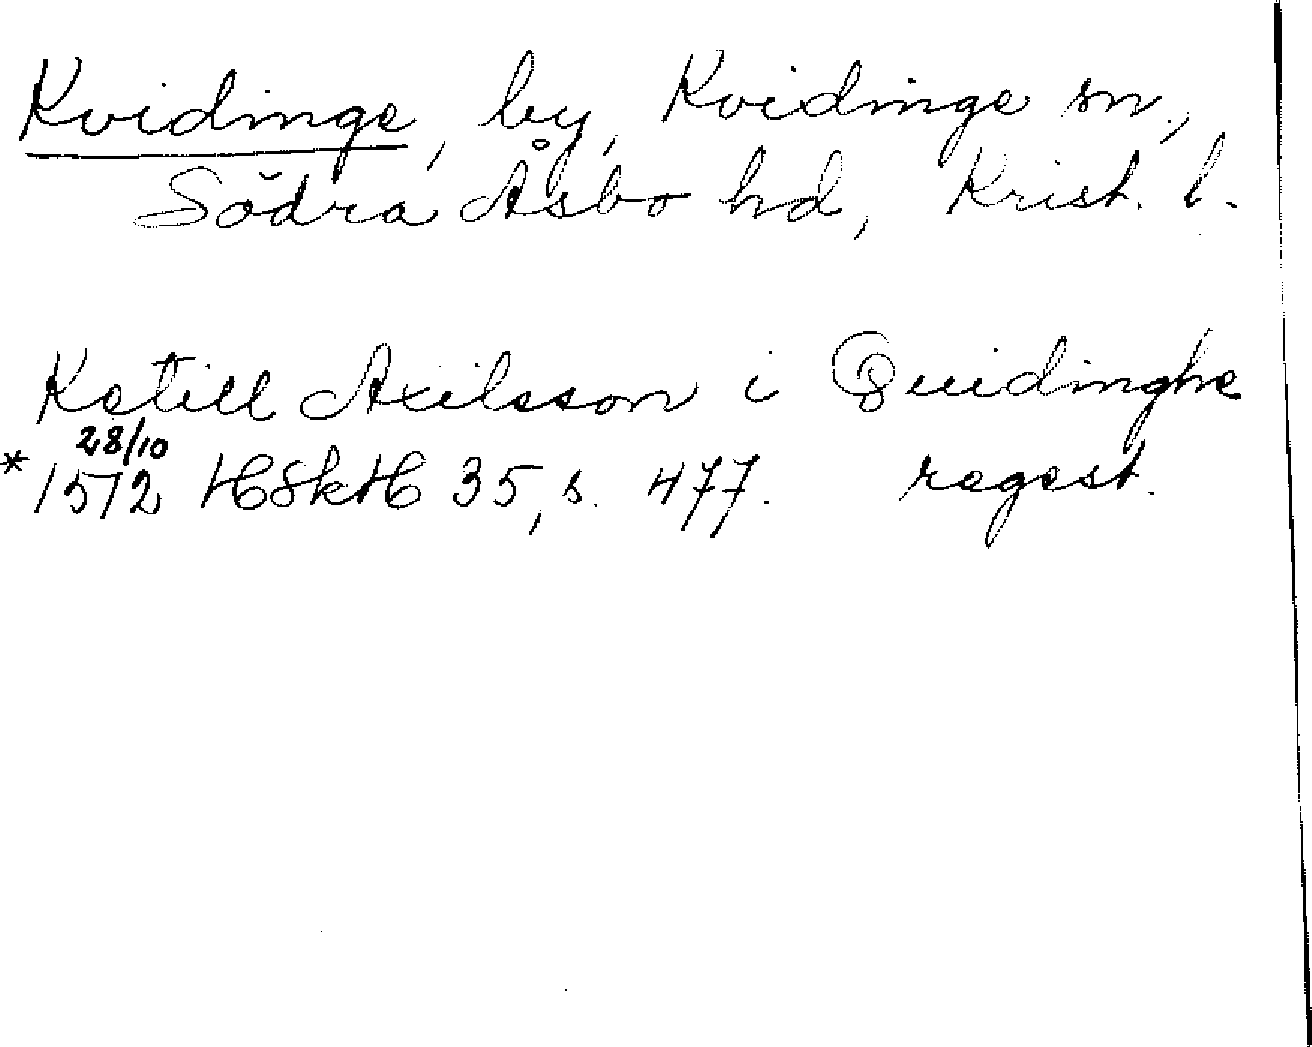 Kvidinge, by, Kvidinge sn.,
Södra Åsbo hd, Krist. l.
Ketill Axilsson i Quidinghe
28/10
*1572 HSkH 35, s. 477. regest.